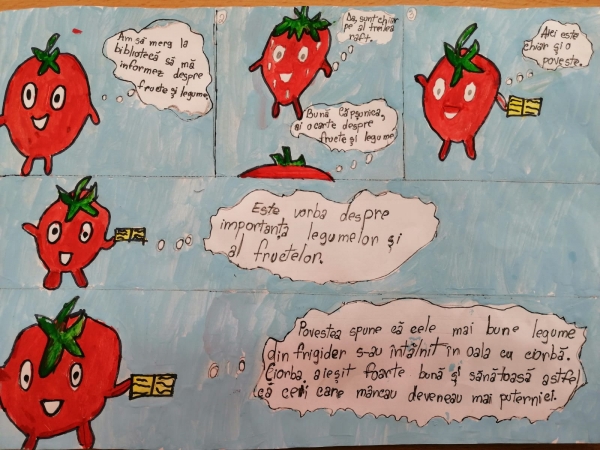 Am să merg la
bibliotecă să mă
informez despre
fructe și legume
Da, sunt chiar
pe al treilea
raft.
Bună Căpșunica,
ai o carte despre
fructe și legume
Aici este
chiar și o
poveste.
Este vorba despre
importanța legumelor și
al fructelor.
Povestea spune că cele mai bune legume
din frigider s-au întâlnit în oala cu ciorbă.
Ciorba a ieșit foarte bună și sănătoasă astfel
că cei care mâncau deveneau mai puternici.